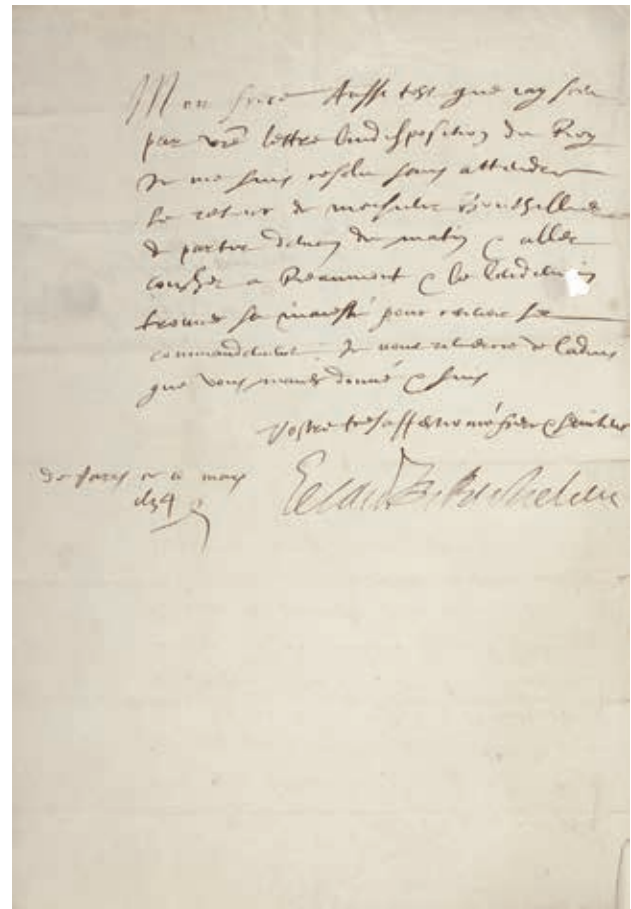 Mon frere Aussi tost que jay sceu
par vre lettre lindisposition du Roy
Je me suis resolu sans attendre
le retour de monsieur Bouthillier
de partir demain du matin & aller
coucher a Beaumont & le lendemain
trouver sa majesté pour recevoir ses
commandemens. Je vous remercie de ladvis
que vous mavez donné & suis
Vostre tres affectionné frere & serviteur
Le Card de Richelieu
de Paris ce mars
1634